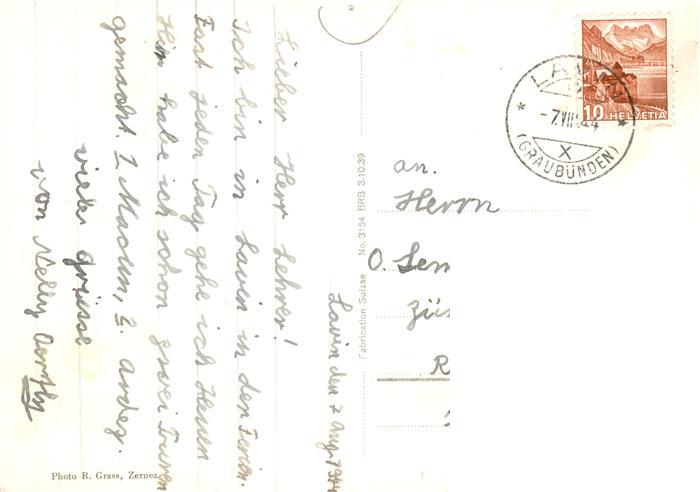 Lavin den 7 Aug 1944
Lieber Herr Lehrer!
Ich bin in Lavin in den Ferien.
Fast jeden Tag gehe ich Heuen
Hir habe ich schon zwei Turen
gemacht. 1 Macun, 2. ardez.
viele Grüsse
von Nelly
Photo R. Grass, Zernez
Fabrication Suisse No. 3154 BRB 3.10.39
LAVIN
-7.VIII.44
X
(GRAUBÜNDEN)
10 HELVETIA
an.
Herrn
O. Sen
Züs
R